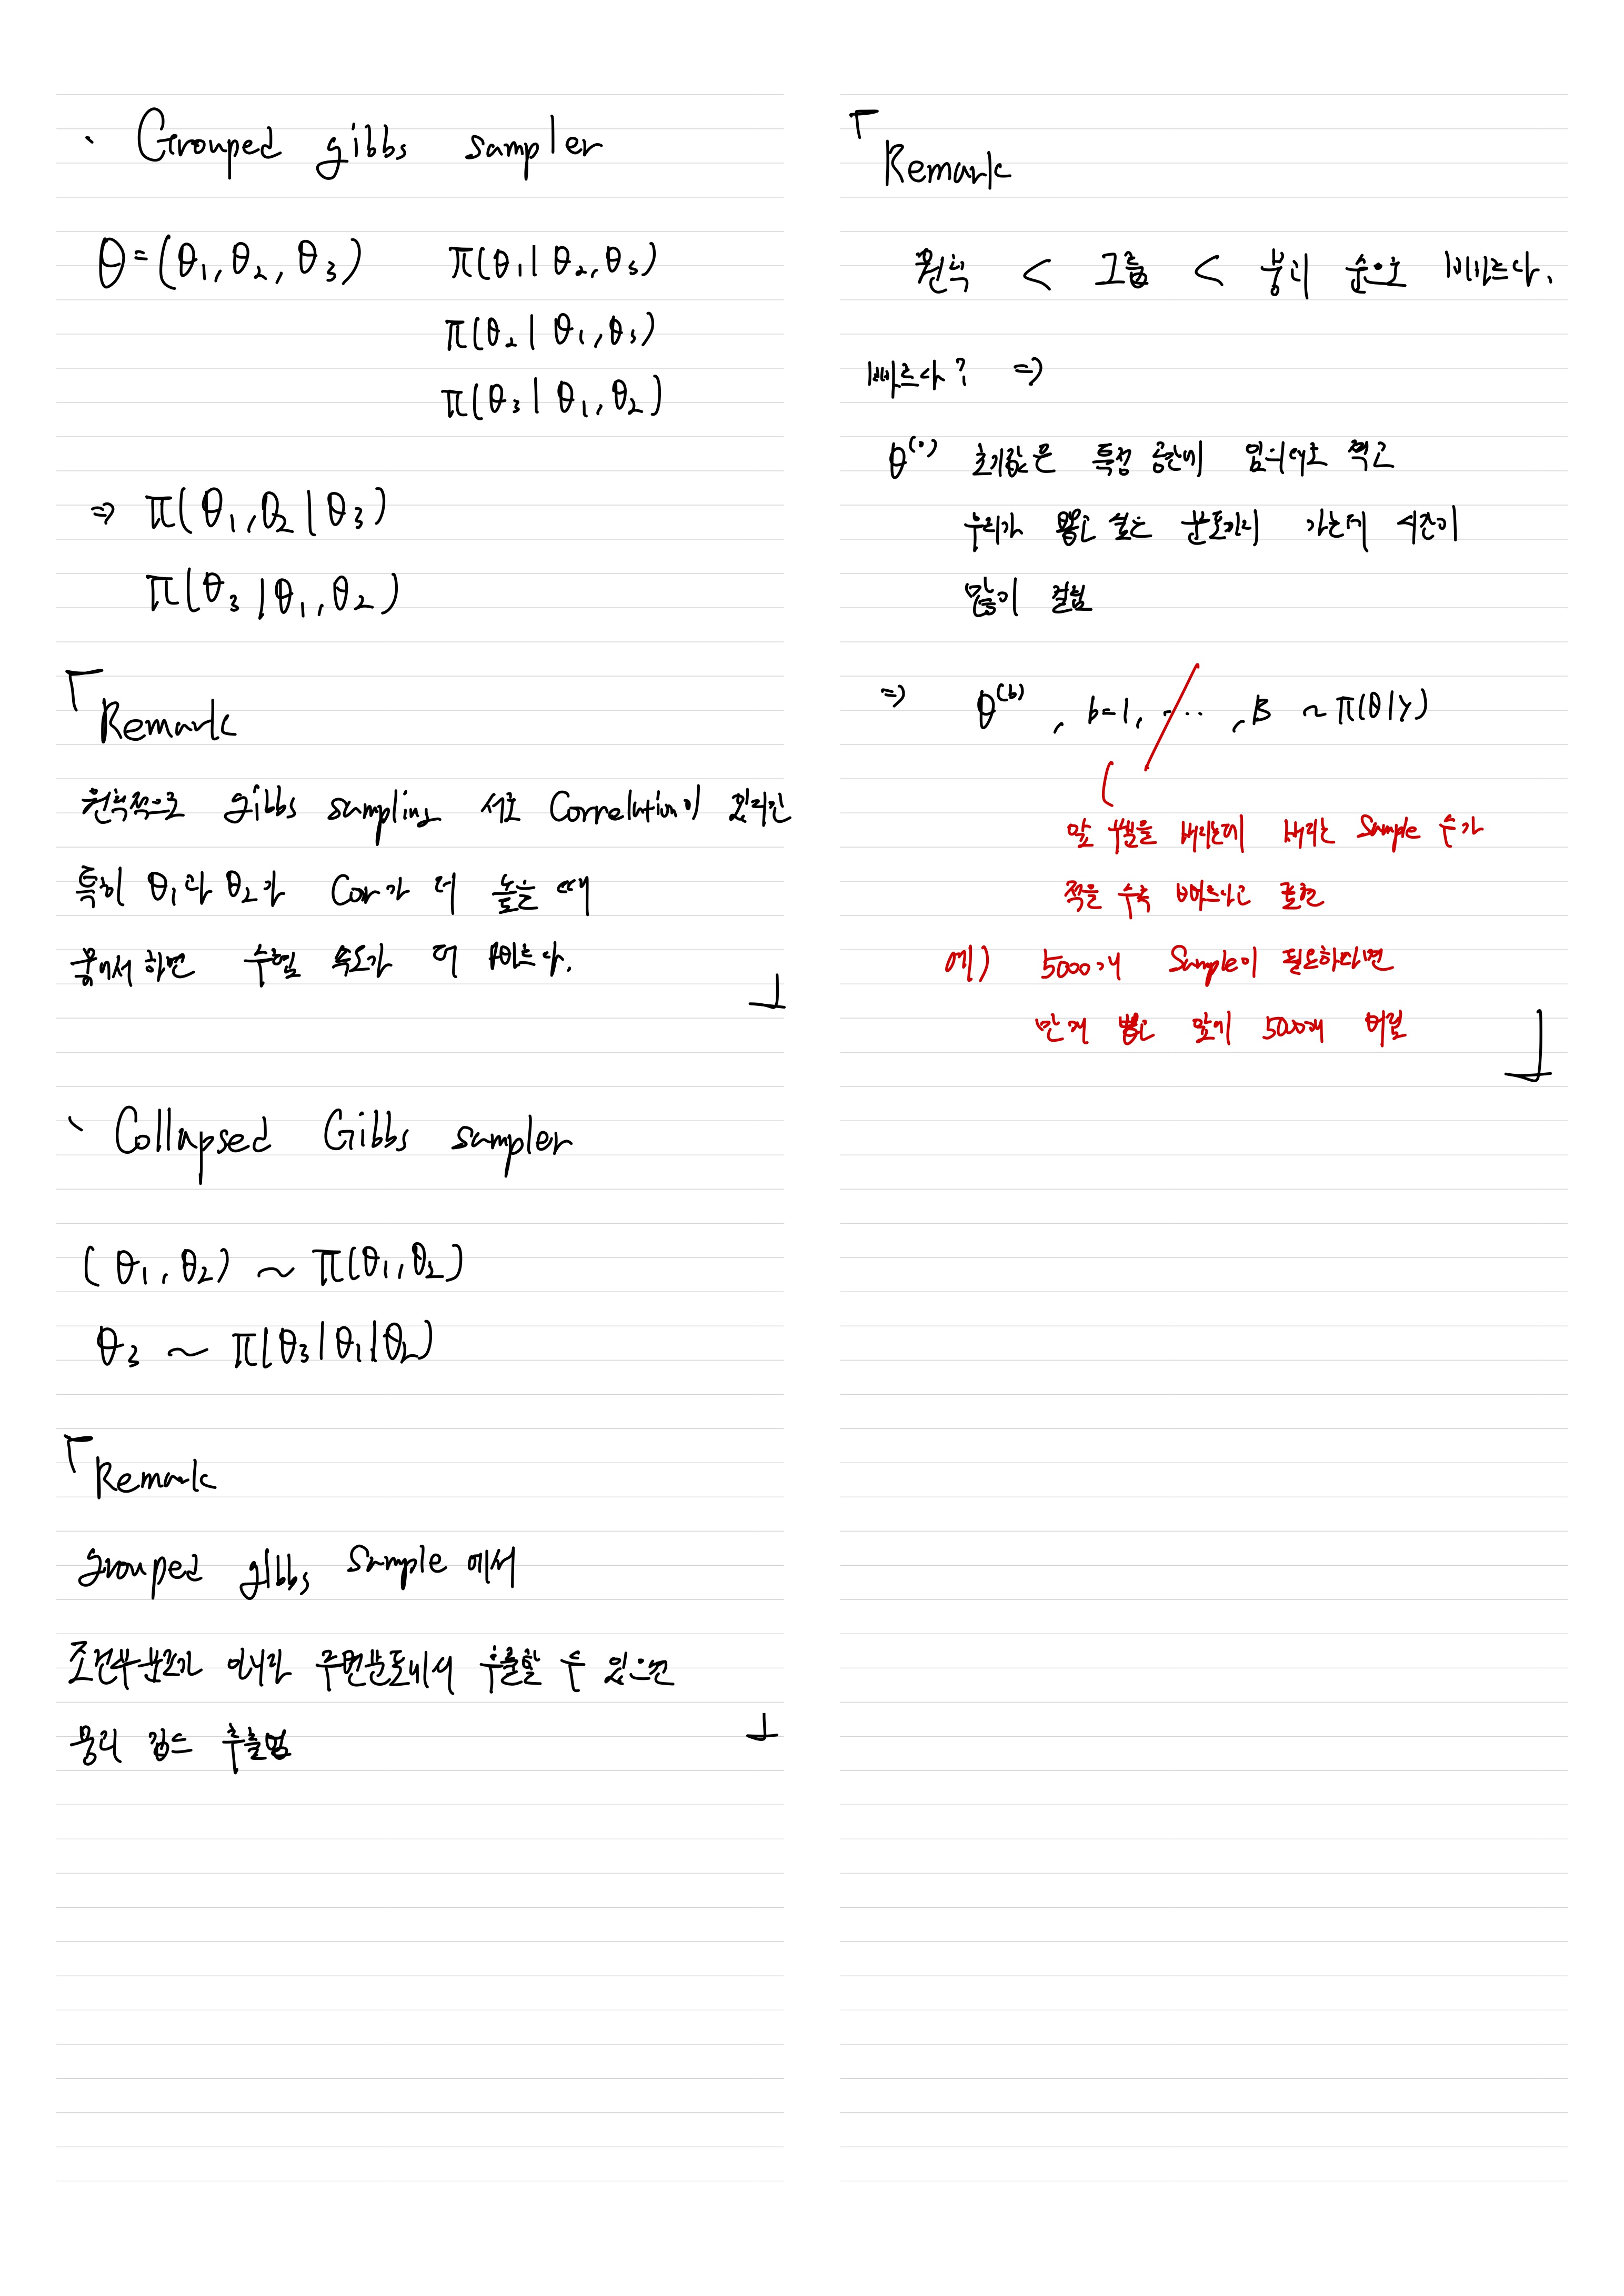 · Grouped gibbs sampler
θ = (θ₁, θ₂, θ₃) π(θ₁ | θ₂, θ₃)
π(θ₂ | θ₁, θ₃)
π(θ₃ | θ₁, θ₂)
⇒ π(θ₁, θ₂ | θ₃)
π(θ₃ | θ₁, θ₂)
「Remark
원칙적으로 gibbs sampling 서로 Correlation이 있지만
특히 θ₁과 θ₂가 Corr가 더 높을 때
묶어서 하면 수렴 속도가 더 빠르다.
」
· Collapsed Gibbs sampler
(θ₁, θ₂) ~ π(θ₁, θ₂)
θ₃ ~ π(θ₃ | θ₁, θ₂)
「Remark
grouped gibbs sample 에서
조건부분포가 아니라 주변분포에서 추출할 수 있으면
붕괴 깁스 추출법
」
「Remark
원칙 < 그룹 < 붕괴 순으로 빠르다.
빠르다? ⇒
θ⁽⁰⁾ 초기값은 특정 공간에 임의대로 찍고
우리가 뽑고 싶은 분포까지 가는데 시간이
많이 걸림
⇒ θ⁽ᵇ⁾, b=1, ..., B ~ π(θ|y)
앞 부분을 버리는데 버리는 Sample 수가
적을 수록 빠르다고 표현
예) 5000개 Sample이 필요하다면
만개 뽑고 앞에 5000개 버림
」